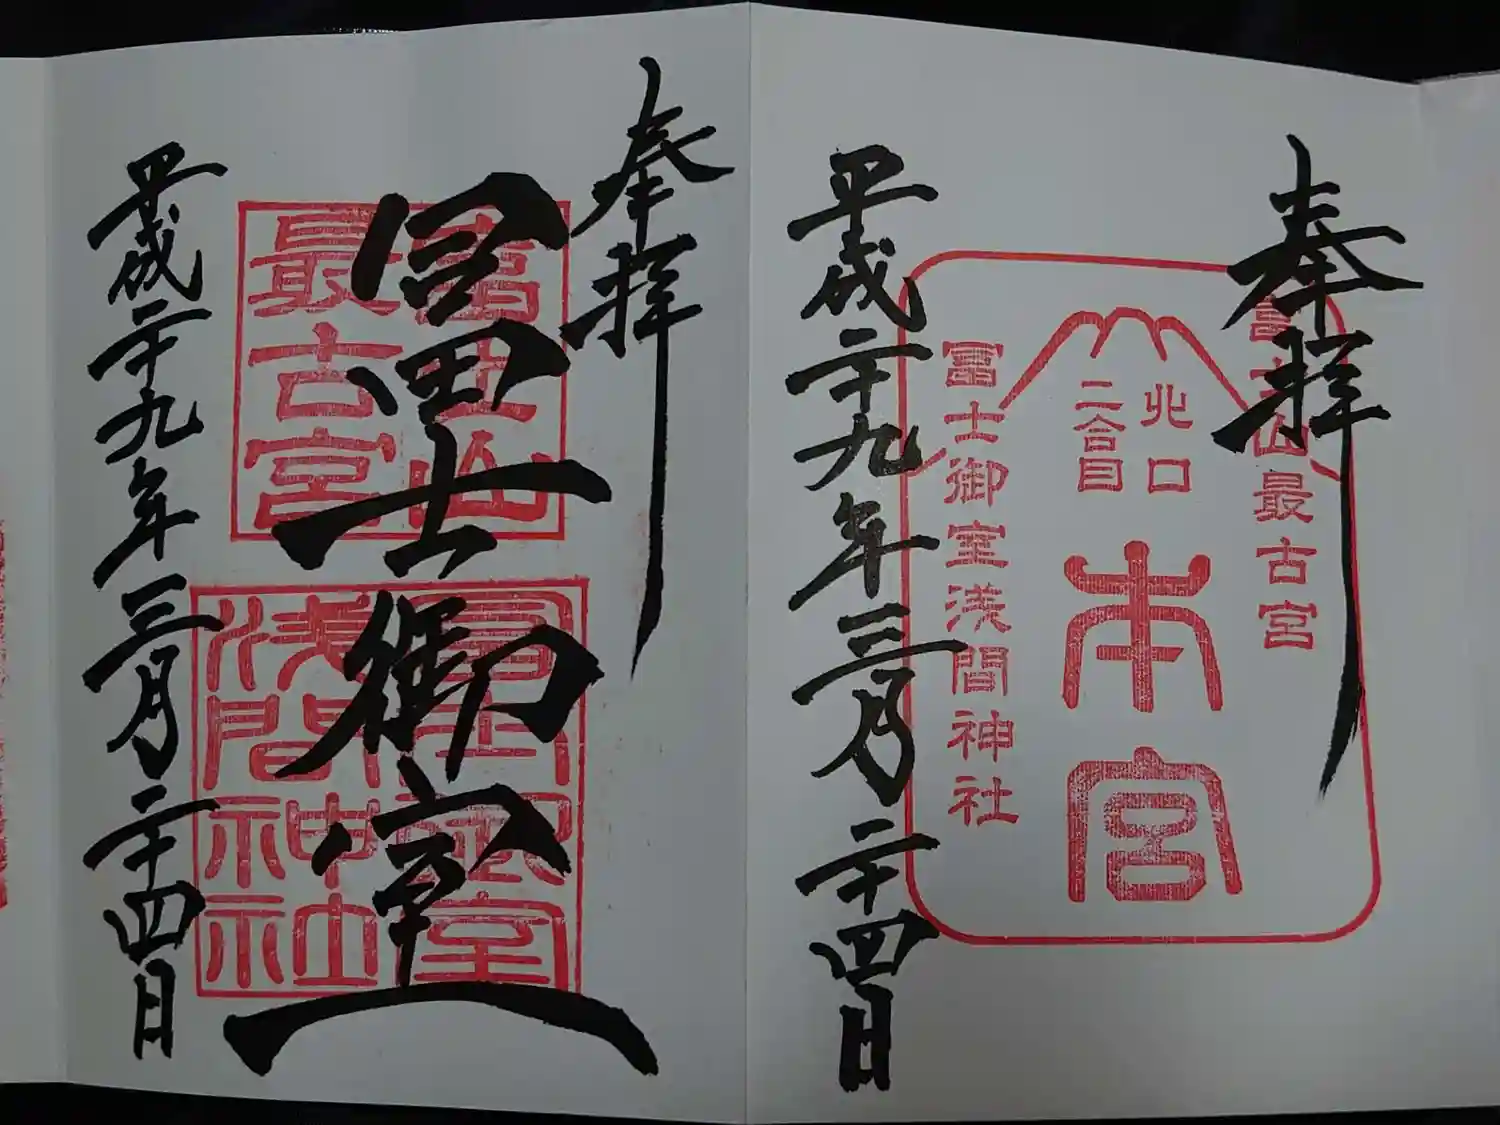 奉拝
富士山最古宮
北口
二合目
本宮
冨士御室浅間神社
平成二十九年三月二十四日
奉拝
冨士御室
富士山
最古宮
冨士御室
浅間神社
平成二十九年三月二十四日